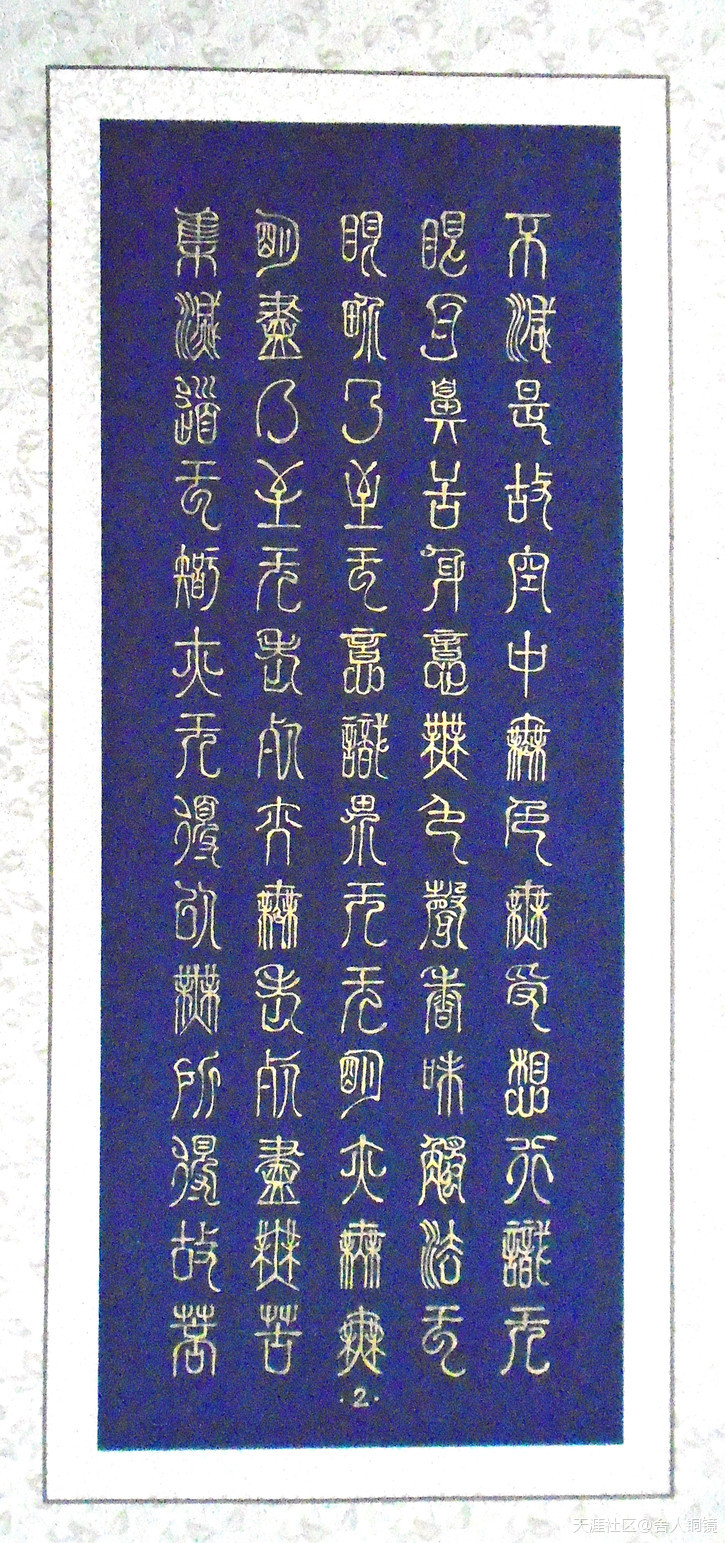 不減是故空中無色無受想行識无
眼耳鼻舌身意無色聲香味觸法无
眼界乃至无意識界无无明亦無無
明盡乃至无老死亦無老死盡無苦
集滅道无智亦无得以無所得故菩
·2·
天涯社区@舍人铜镜